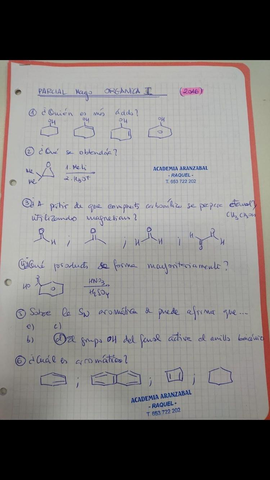 PARCIAL Mayo ORGÁNICA II (2016)
① ¿Quién es más ácido?
OH OH OH OH
② ¿Qué se obtendrá?
Me
Me
O
1. MeL
2. H3O+
ACADEMIA ARANZABAL
- RAQUEL -
T. 983.722.202
③ A partir de que compuesto carbonílico se prepara etanol
utilizando magnesiano? (CH3CH2OH)
O H , O , H O H , O H
④ ¿Qué producto se forma mayoritariamente?
HO
HNO3
H2SO4
⑤ Sobre la SN aromática se puede afirmar que...
a) c)
b) d) El grupo OH del fenol activa el anillo bencénico
⑥ ¿Cuál es aromático?
; ; ;
ACADEMIA ARANZABAL
- RAQUEL -
T. 983.722.202